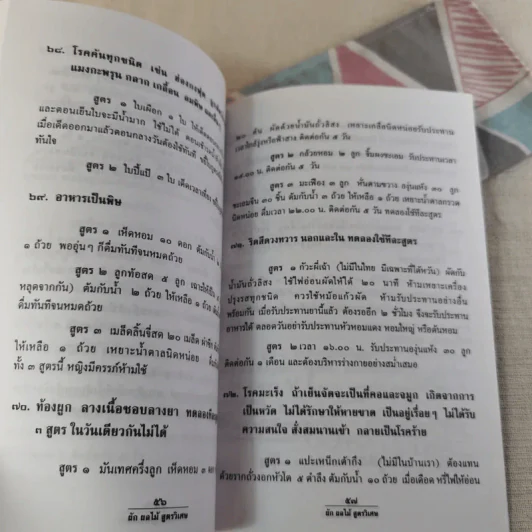 ๖๘. โรคคันทุกชนิด เช่น ฮ่องกงฟุต
แมงกะพรุน กลาก เกลื้อน
สูตร ๑ ใบเผือก ๑ ใบ
และตอนเย็นใบจะมีน้ำมาก ใช้ไม่ได้
เมื่อเด็ดออกมาแล้วตอนกลางวันต้องใช้ทันที
ทันใจ
สูตร ๒ ใบปี้แป ๓ ใบ
๖๙. อาหารเป็นพิษ
สูตร ๑ เห็ดหอม ๑๐ ดอก ต้มกับน้ำ
๑ ถ้วย พออุ่นๆ ก็ดื่มทันทีจนหมดถ้วย
สูตร ๒ ลูกท้อสด ๕ ลูก
หลุดจากกัน) ต้มกับน้ำ ๒ ถ้วย ให้เหลือ ๑ ถ้วย
ดื่มทันทีจนหมดถ้วย
สูตร ๓ เมล็ดลิ้นจี่สด ๒๐ เมล็ด
ให้เหลือ ๑ ถ้วย เหยาะน้ำตาลนิดหน่อย
ทั้ง ๓ สูตรนี้ หญิงมีครรภ์ห้ามใช้
๗๐. ท้องผูก ลางเนื้อชอบลางยา
๓ สูตร ในวันเดียวกันไม่ได้
สูตร ๑ มันเทศครึ่งลูก เห็ดหอม
๕๖
ผัก ผลไม้ สูตรวิเศษ
ผัดด้วยน้ำมันถั่วลิสง เหยาะเกลือนิดหน่อยรับประทาน
ติดต่อกัน ๕ วัน
สูตร ๒ กล้วยหอม ๒ ลูก จิ้มผงชะเอม รับประทานเวลา
ติดต่อกัน ๕ วัน
สูตร ๓ มะเฟือง ๓ ลูก หั่นตามขวาง องุ่นแห้ง ๓๐ ลูก
ชะเอมจีน ๓๐ ชิ้น ต้มกับน้ำ ๓ ถ้วย ให้เหลือ ๑ ถ้วย เหยาะน้ำตาลกรวด
นิดหน่อย ดื่มเวลา ๒๒.๐๐ น. ติดต่อกัน ๕ วัน ทดลองใช้ทีละสูตร
๗๑. ริดสีดวงทวาร นอกและใน ทดลองใช้ทีละสูตร
สูตร ๑ (ไม่มีในไทย มีเฉพาะที่ไต้หวัน) ผัดกับ
น้ำมันถั่วลิสง ใช้ไฟอ่อนผัดให้ได้ ๒๐ นาที ห้ามเหยาะเครื่อง
ปรุงรสทุกชนิด ควรใช้หม้อแก้วผัด ห้ามรับประทานอย่างอื่น
พร้อมกัน เมื่อรับประทานยานี้แล้ว ต้องรออีก ๒ ชั่วโมง จึงจะรับประทาน
อาหารได้ ตลอดวันอย่ารับประทานหัวหอมแดง หอมใหญ่ หรือต้นหอม
สูตร ๒ เวลา ๑๖.๐๐ น. รับประทานองุ่นแห้ง ๓๐ ลูก
ติดต่อกัน ๑ เดือน และต้องบริหารร่างกายอย่างสม่ำเสมอ
๗๒. โรคมะเร็ง ถ้าเย็นจัดจะเป็นที่คอและจมูก เกิดจากการ
เป็นหวัด ไม่ได้รักษาให้หายขาด เป็นอยู่เรื่อยๆ ไม่ได้รับ
ความสนใจ สั่งสมนานเข้า กลายเป็นโรคร้าย
สูตร ๑ แปะเหน็กเต้ากึ้ง (ไม่มีในบ้านเรา) ต้องแทน
ด้วยรากถั่วงอกหัวโต ๕ ตำลึง ต้มกับน้ำ ๑๐ ถ้วย เมื่อเดือด หรี่ไฟให้อ่อน
๕๗
ผัก ผลไม้ สูตรวิเศษ